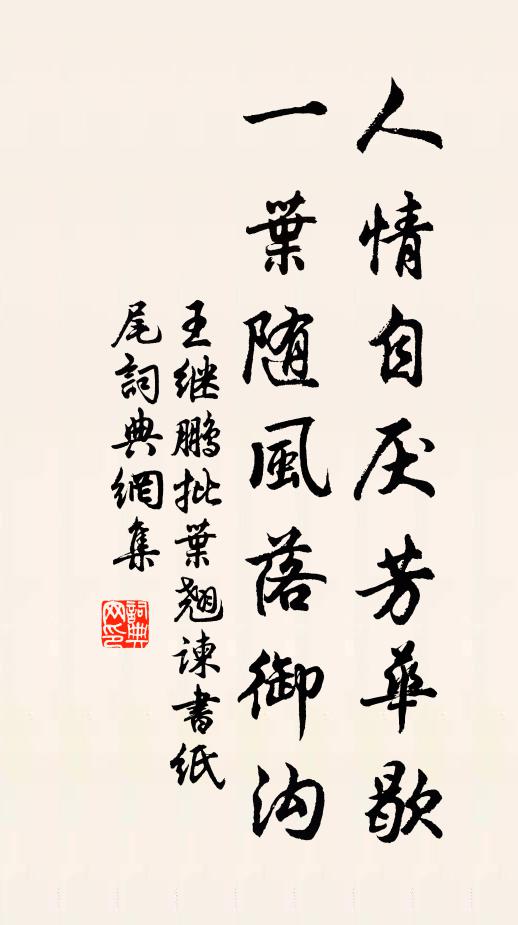 人情自厌芳華歇
一葉随風落御沟
王继鹏批葉翘諫書紙
尾詞典網集
詞典网印